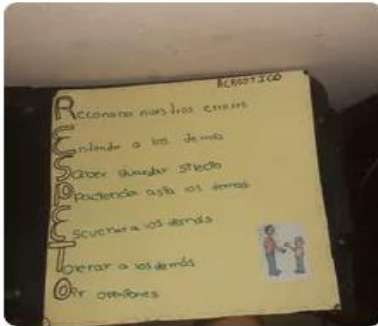 ACROSTICO
Reconocer nuestros errores
Entender a los demas
Saber guardar
Paciencia asia los demas
Escuchar a los demás
Tolerar a los demás
Oir opiniones